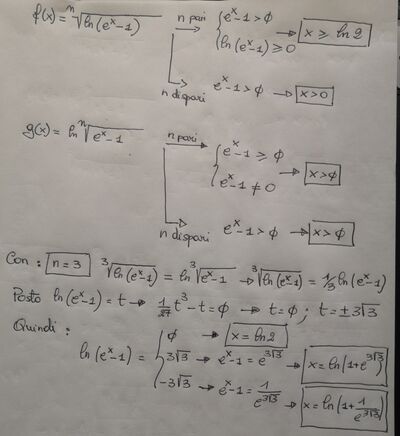 f(x) = ⁿ√(ln(eˣ-1)) n pari → { eˣ-1 > 0
ln(eˣ-1) ≥ 0 → x ≥ ln2
n dispari eˣ-1 > 0 → x>0
g(x) = ln ⁿ√(eˣ-1) n pari → { eˣ-1 ≥ 0
eˣ-1 ≠ 0 → x>0
n dispari eˣ-1 > 0 → x>0
Con: n=3 ³√(ln(eˣ-1)) = ln ³√(eˣ-1) → ³√(ln(eˣ-1)) = 1/3 ln(eˣ-1)
Posto ln(eˣ-1) = t → 1/27 t³ - t = 0 → t=0; t=±3√3
Quindi:
ln(eˣ-1) = { 0 → x = ln2
3√3 → eˣ-1 = e^(3√3) → x = ln(1+e^(3√3))
-3√3 → eˣ-1 = 1/e^(3√3) → x = ln(1+1/e^(3√3))